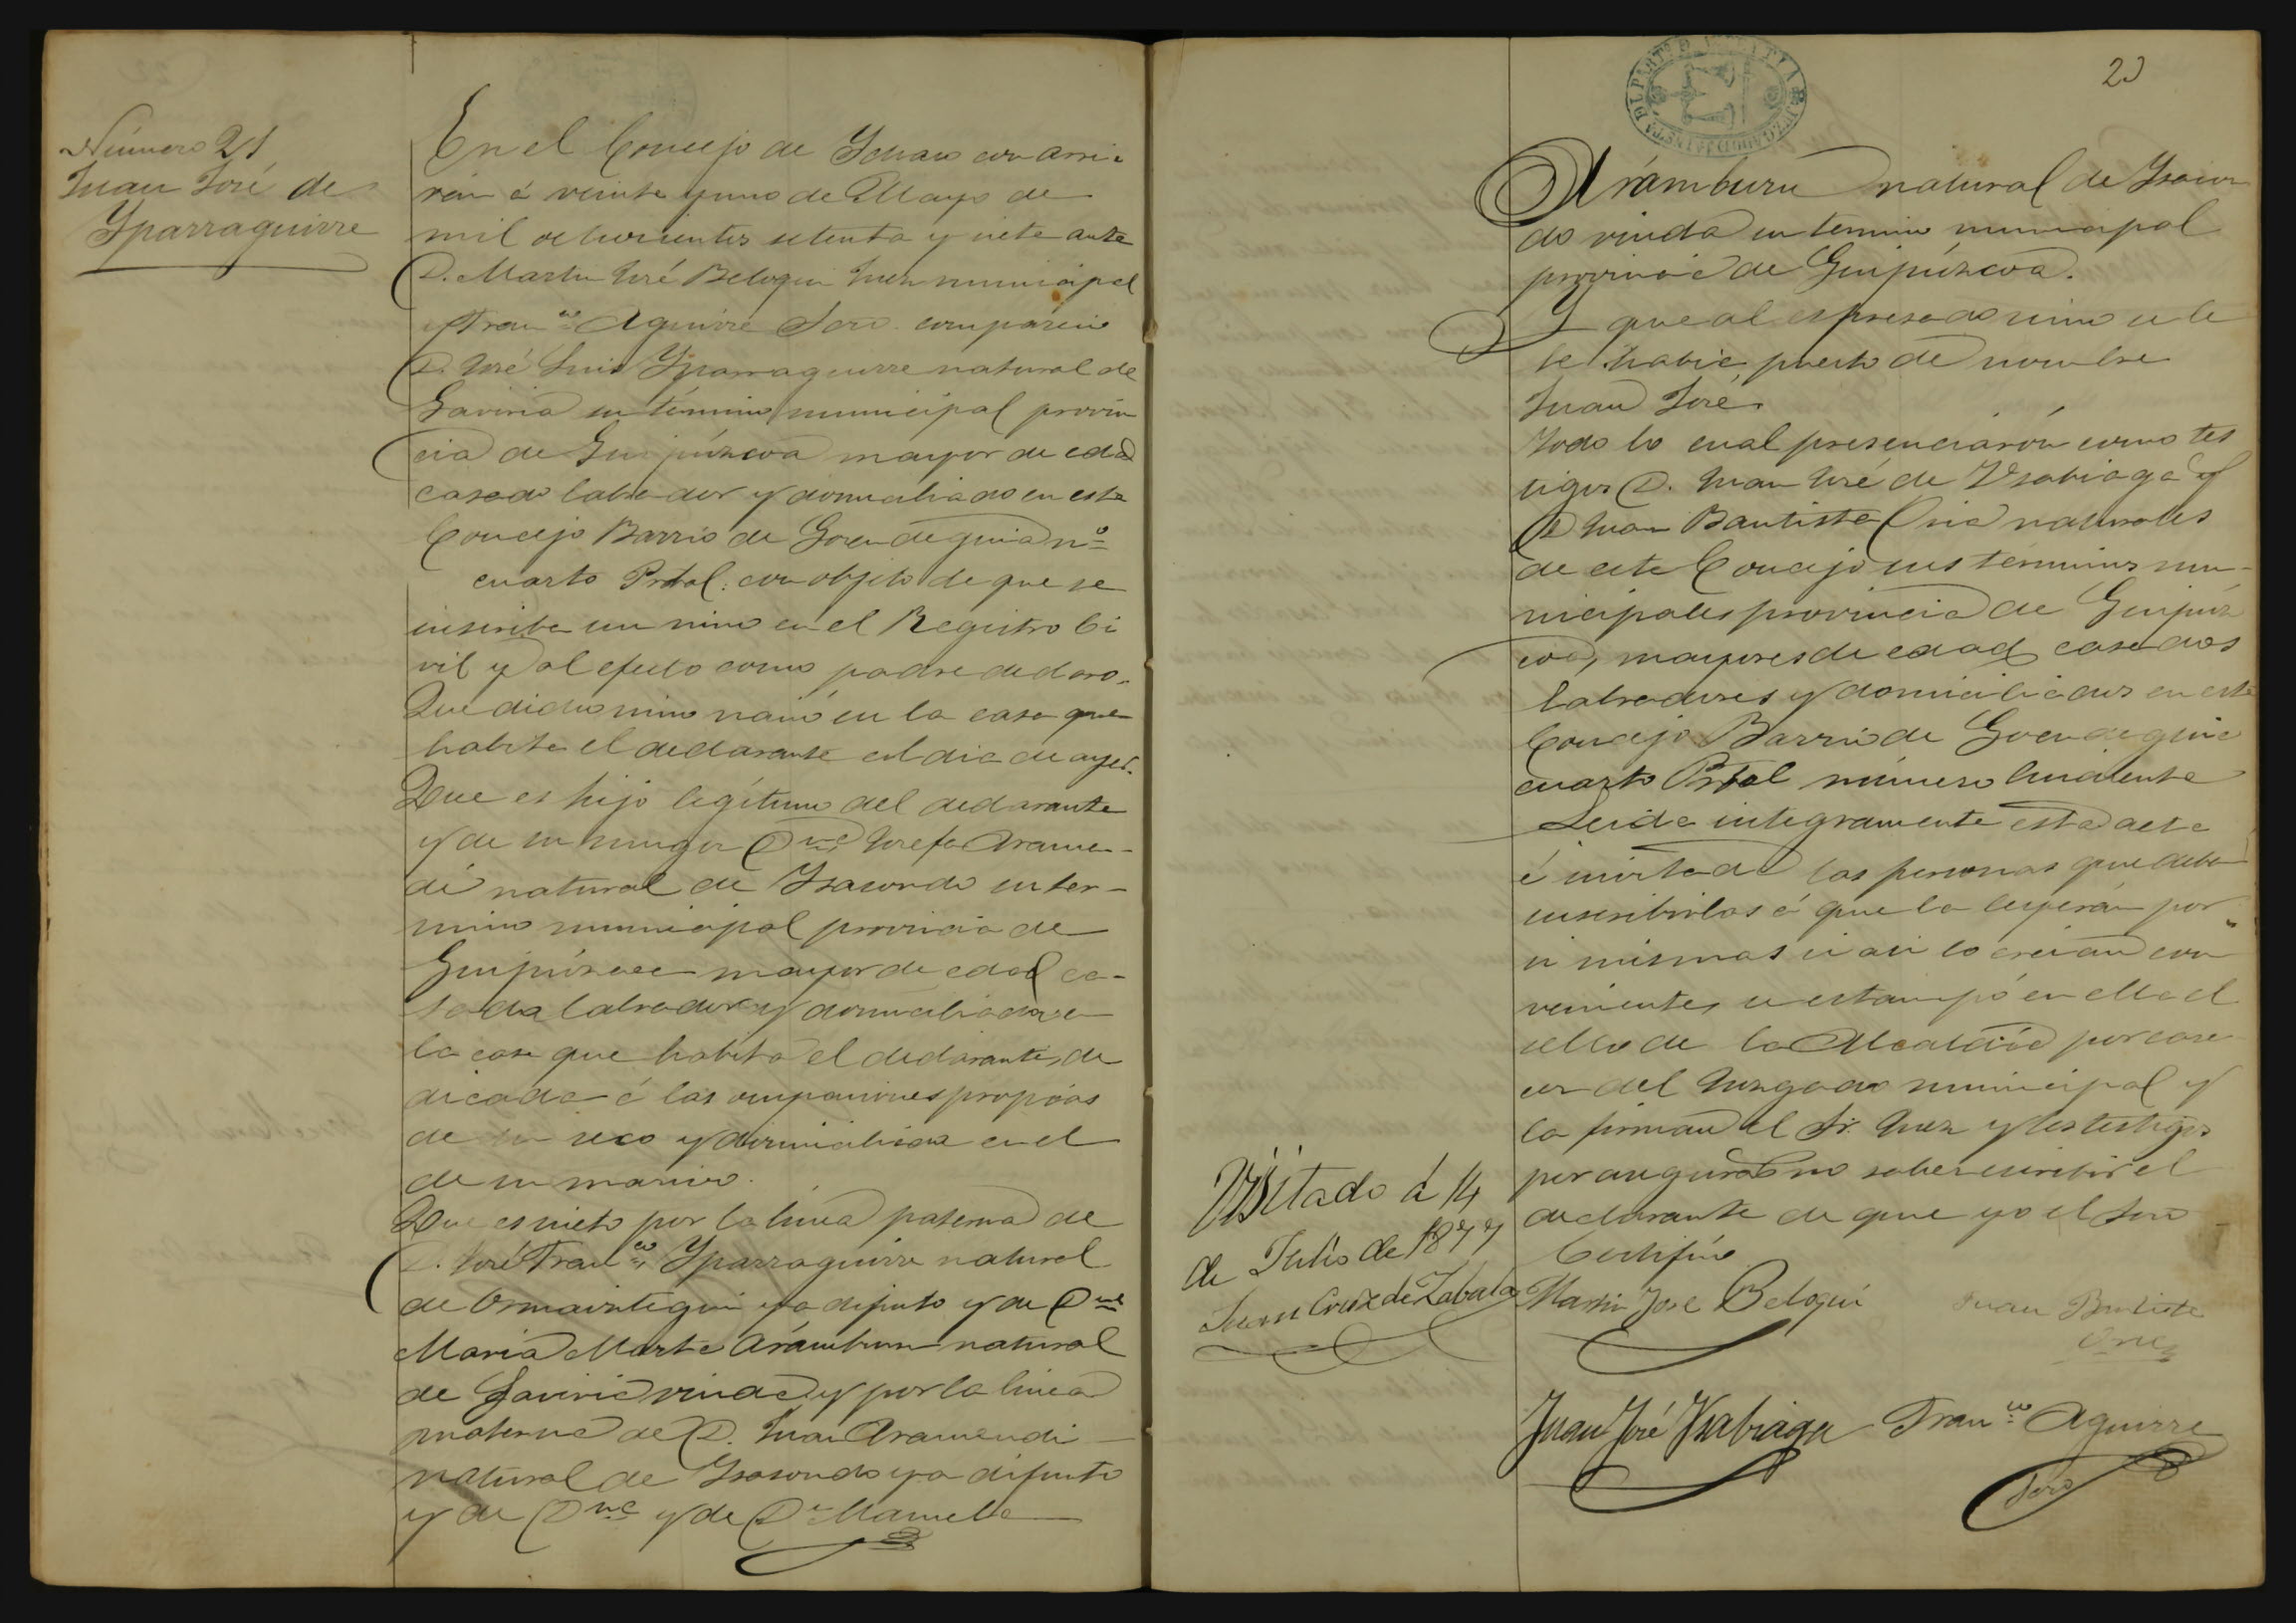 Número 21
Juan José de
Yparraguirre
En el Concejo de Ichaso con Arri-
rán á veinte y uno de Mayo de
mil ochocientos setenta y siete ante
D. Martin José Beloqui Juez municipal
y Fran.co Aguirre Srio. compareció
D. José Luis Yparraguirre natural de
Gaviria su término municipal provin
cia de Guipúzcoa mayor de edad
casado labrador y domiciliado en este
Concejo Barrio de Goendeguia nº
cuarto Prtal. con objeto de que se
inscriba un nino en el Registro Ci
vil y al efecto como padre declaro.
Que dicho nino nació en la casa que
habita el declarante el dia de ayer.
Que es hijo legítimo del declarante
y de su muger Dna Josefa Aramen-
di natural de Ysasondo su ter-
mino municipal provincia de
Guipúzcoa mayor de edad ca-
sada labradora y domiciliada en
la casa que habita el declarante, de
dicada á las ocupaciones propias
de su secso y domiciliada en el
de su marido.
Que es nieto por la linea paterna de
D. José Fran.co Yparraguirre natural
de Ormaiztegui ya difunto y de Dna
Maria Marta Arámburu natural
de Gaviria viuda y por la linea
materna de D. Juan Aramendi
natural de Ysasondo ya difunto
y de Dna y de Da Manuela
23
Arámburu natural de Ysason
do viuda su termino municipal
provincia de Guipúzcoa.
Y que al espresado nino se le
le habia puesto de nombre
Juan José.
Todo lo cual presenciarón como tes
tigos D. Juan José de Ysabiaga y
D Juan Bautista Oria naturales
de este Concejo sus terminos mu-
nicipales provincia de Guipuz
coa, mayores de edad casados
labradores y domiciliados en este
Concejo Barrio de Goendeguia
cuarto Prtal número
Leida integramente esta acta
é invitada las personas que deben
suscribirlas á que la leyerán por
si mismas si asi lo creian con
veniente, se estampó en ella el
sello de la Alcaldía por care
cer del Juzgado municipal y
la firman el Sr. Juez y los testigos
por asegurado no saber escribir el
declarante de que yo el Srio
Certifico
Visitado á 14
de Julio de 1877
Juan Cruz de Zabala
Martin José Beloqui
Juan Bautista
Oria
Juan José Ysabiaga
Fran.co Aguirre
Srio